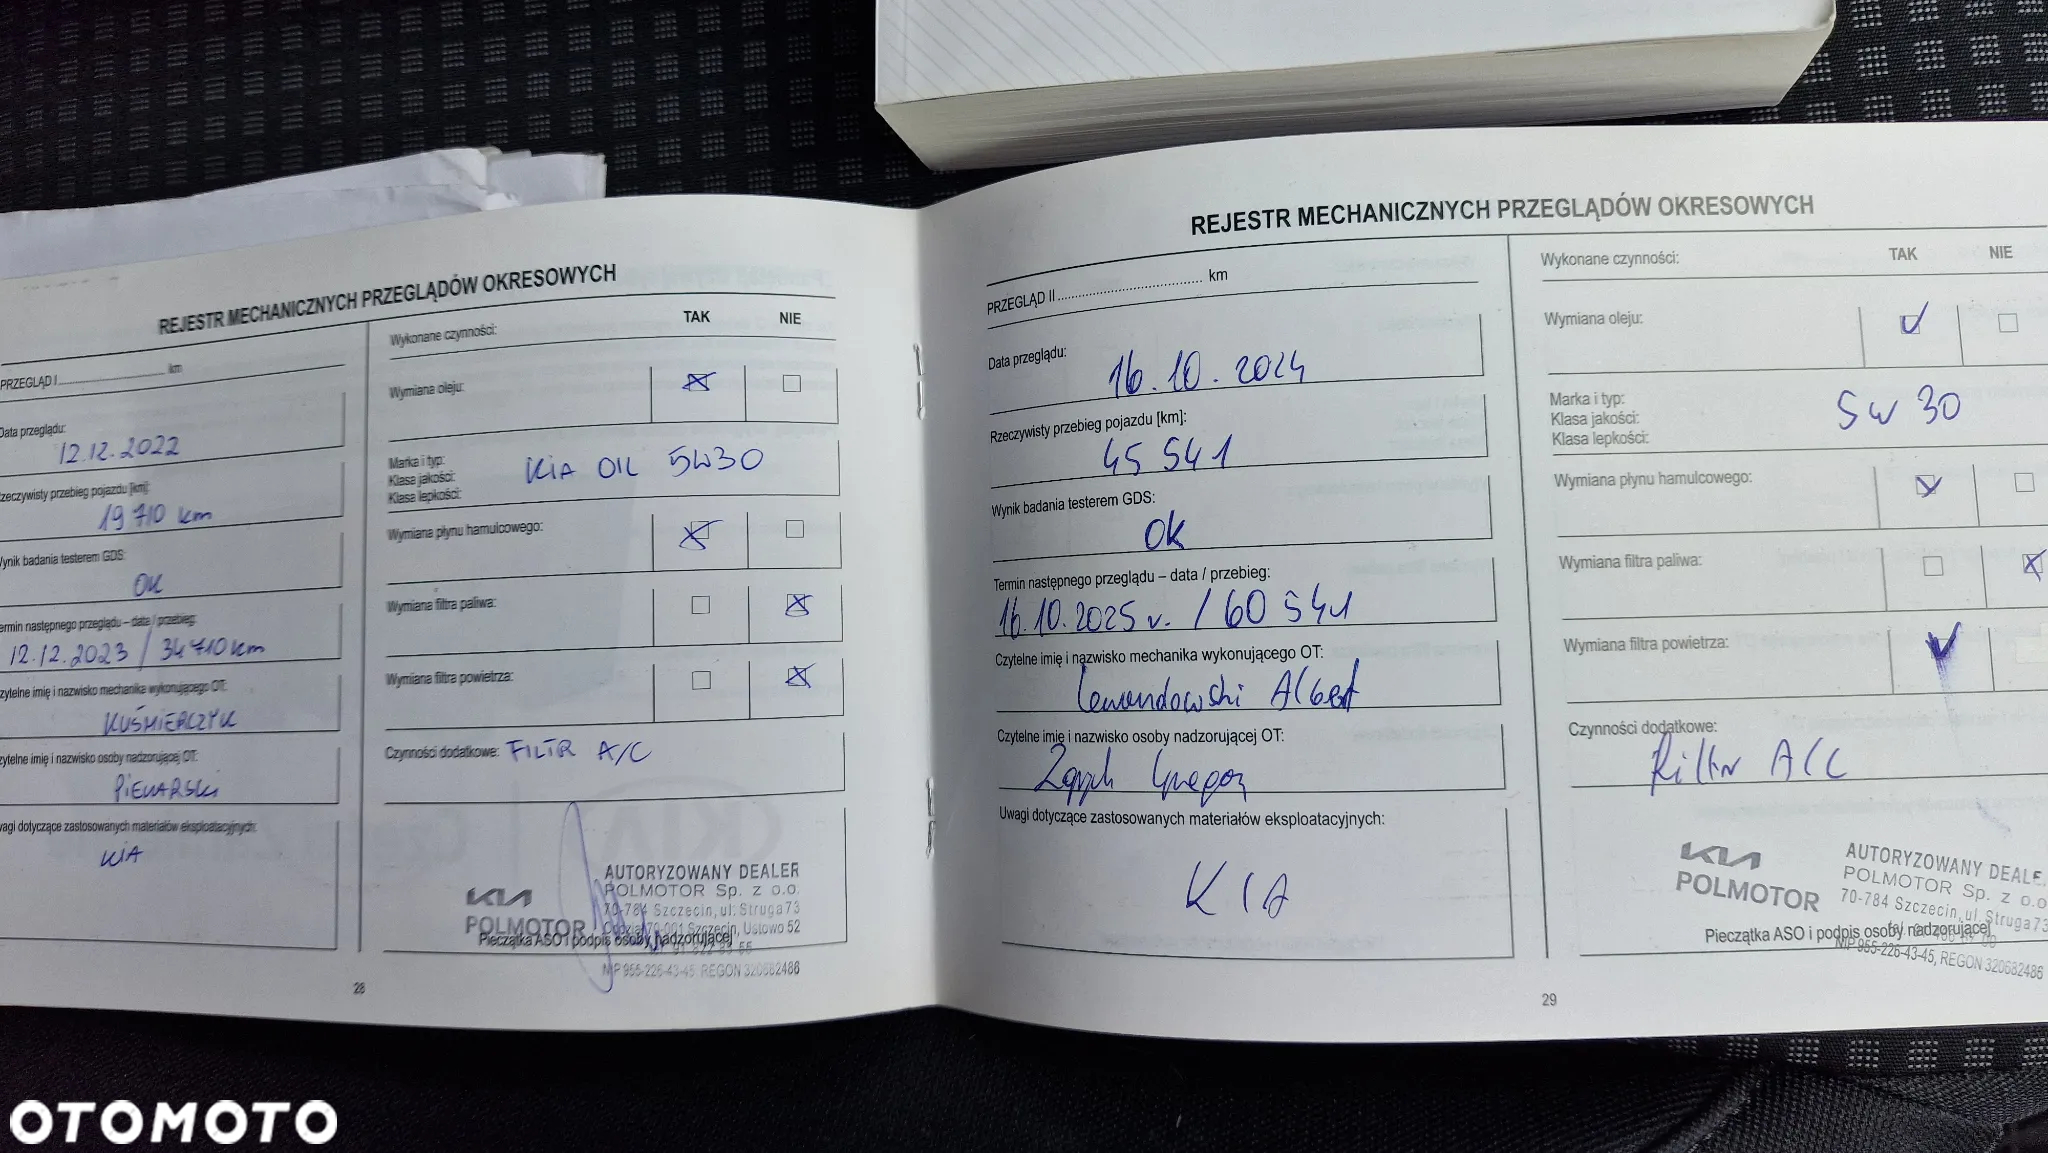 REJESTR MECHANICZNYCH PRZEGLĄDÓW OKRESOWYCH
PRZEGLĄD I ........................ km
Data przeglądu:
12.12.2022
Rzeczywisty przebieg pojazdu [km]:
19 710 km
Wynik badania testerem GDS:
OK
Termin następnego przeglądu – data / przebieg:
12.12.2023 / 34 710 km
Czytelne imię i nazwisko mechanika wykonującego OT:
KUŚMIERCZYK
Czytelne imię i nazwisko osoby nadzorującej OT:
PIEKARSKI
Uwagi dotyczące zastosowanych materiałów eksploatacyjnych:
KIA
Wykonane czynności: TAK NIE
Wymiana oleju:
Marka i typ:
Klasa jakości:
Klasa lepkości:
KIA OIL 5W30
Wymiana płynu hamulcowego:
Wymiana filtra paliwa:
Wymiana filtra powietrza:
Czynności dodatkowe: FILTR A/C
KIA
POLMOTOR
AUTORYZOWANY DEALER
POLMOTOR Sp. z o.o.
70-784 Szczecin, ul. Struga 73
70-001 Szczecin, Ustowo 52
Pieczątka ASO i podpis osoby nadzorującej
NIP 955-226-43-45, REGON 320682486
28
REJESTR MECHANICZNYCH PRZEGLĄDÓW OKRESOWYCH
PRZEGLĄD II ........................ km
Data przeglądu:
16.10.2024
Rzeczywisty przebieg pojazdu [km]:
45 541
Wynik badania testerem GDS:
OK
Termin następnego przeglądu – data / przebieg:
16.10.2025 r. / 60 541
Czytelne imię i nazwisko mechanika wykonującego OT:
Lewandowski Albert
Czytelne imię i nazwisko osoby nadzorującej OT:
Uwagi dotyczące zastosowanych materiałów eksploatacyjnych:
KIA
Wykonane czynności: TAK NIE
Wymiana oleju:
Marka i typ:
Klasa jakości:
Klasa lepkości:
5W30
Wymiana płynu hamulcowego:
Wymiana filtra paliwa:
Wymiana filtra powietrza:
Czynności dodatkowe:
A/C
KIA
POLMOTOR
AUTORYZOWANY DEALE
POLMOTOR Sp. z o.o
70-784 Szczecin, ul. Struga 73
Pieczątka ASO i podpis osoby nadzorującej
NIP 955-226-43-45, REGON 320682486
29
OTOMOTO